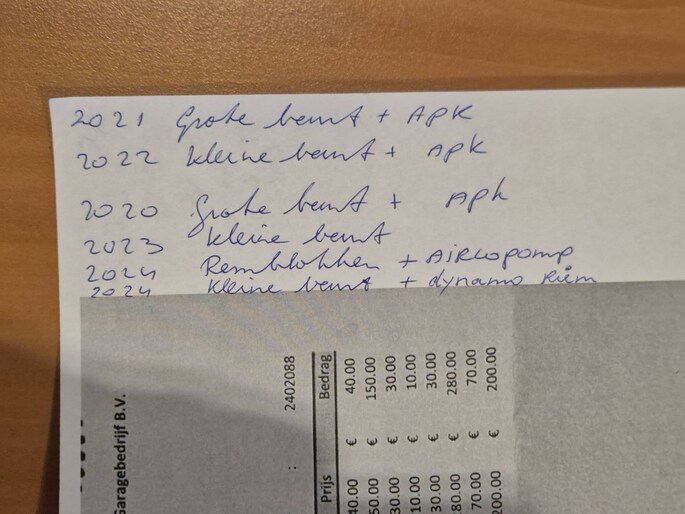 2021 Grote beurt + APK
2022 kleine beurt + APK
2020 Grote beurt + APK
2023 kleine beurt
2024 Remblokken + AIRCOpomp
2024 kleine beurt + dynamo Riem
Garagebedrijf B.V.
: 2402088
Prijs Bedrag
40.00 € 40.00
50.00 € 150.00
30.00 € 30.00
10.00 € 10.00
30.00 € 30.00
280.00 € 280.00
70.00 € 70.00
200.00 € 200.00